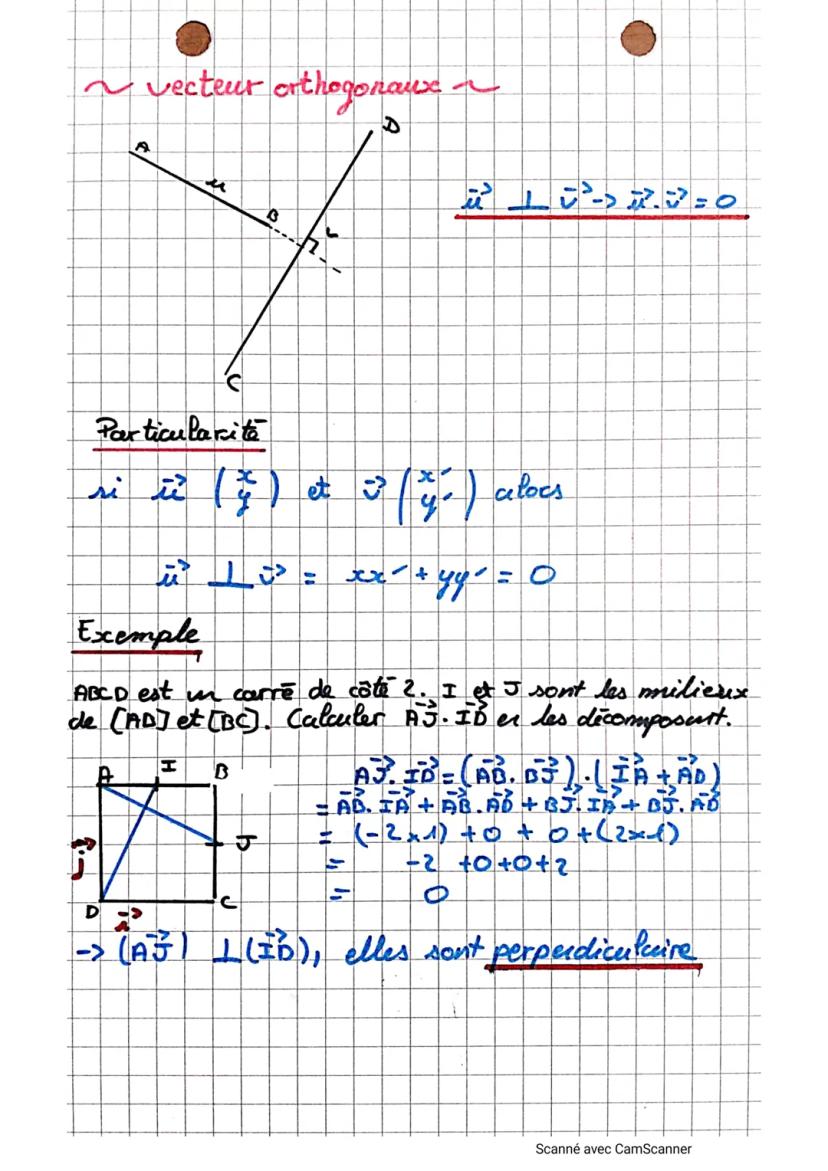 ~ vecteur orthogonaux ~
A
D
u
B
v
C
u⃗ ⊥ v⃗ -> u⃗.v⃗ = 0
Particularité
si u⃗ (x y) et v⃗ (x' y') alors
u⃗ ⊥ v⃗ = xx' + yy' = 0
Exemple
ABCD est un carré de côté 2. I et J sont les milieux
de [AD] et [BC]. Calculer AJ⃗. ID⃗ en les décomposant.
A I B
J
j⃗
D C
i⃗
AJ⃗. ID⃗ = (AB⃗. BJ⃗).(IA⃗ + AD⃗)
= AB⃗. IA⃗ + AB⃗. AD⃗ + BJ⃗. IA⃗ + BJ⃗. AD⃗
= (-2x1) + 0 + 0 + (2x1)
= -2 +0+0+2
= 0
-> (AJ⃗) ⊥ (ID⃗), elles sont perperdiculaire
Scanné avec CamScanner